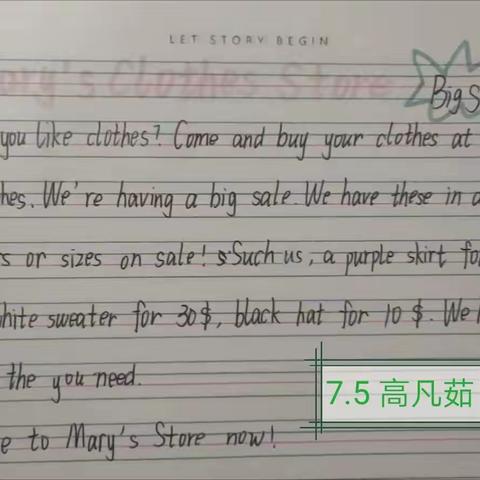 LET STORY BEGIN
ory's Clothes Store
Big S
you like clothes? Come and buy your clothes at
hes. We're having a big sale. We have these in a
s or sizes on sale! Such us, a purple skirt fo
hite sweater for 30$, black hat for 10 $. We
the you need.
7.5 高凡茹
e to Mary's Store now!